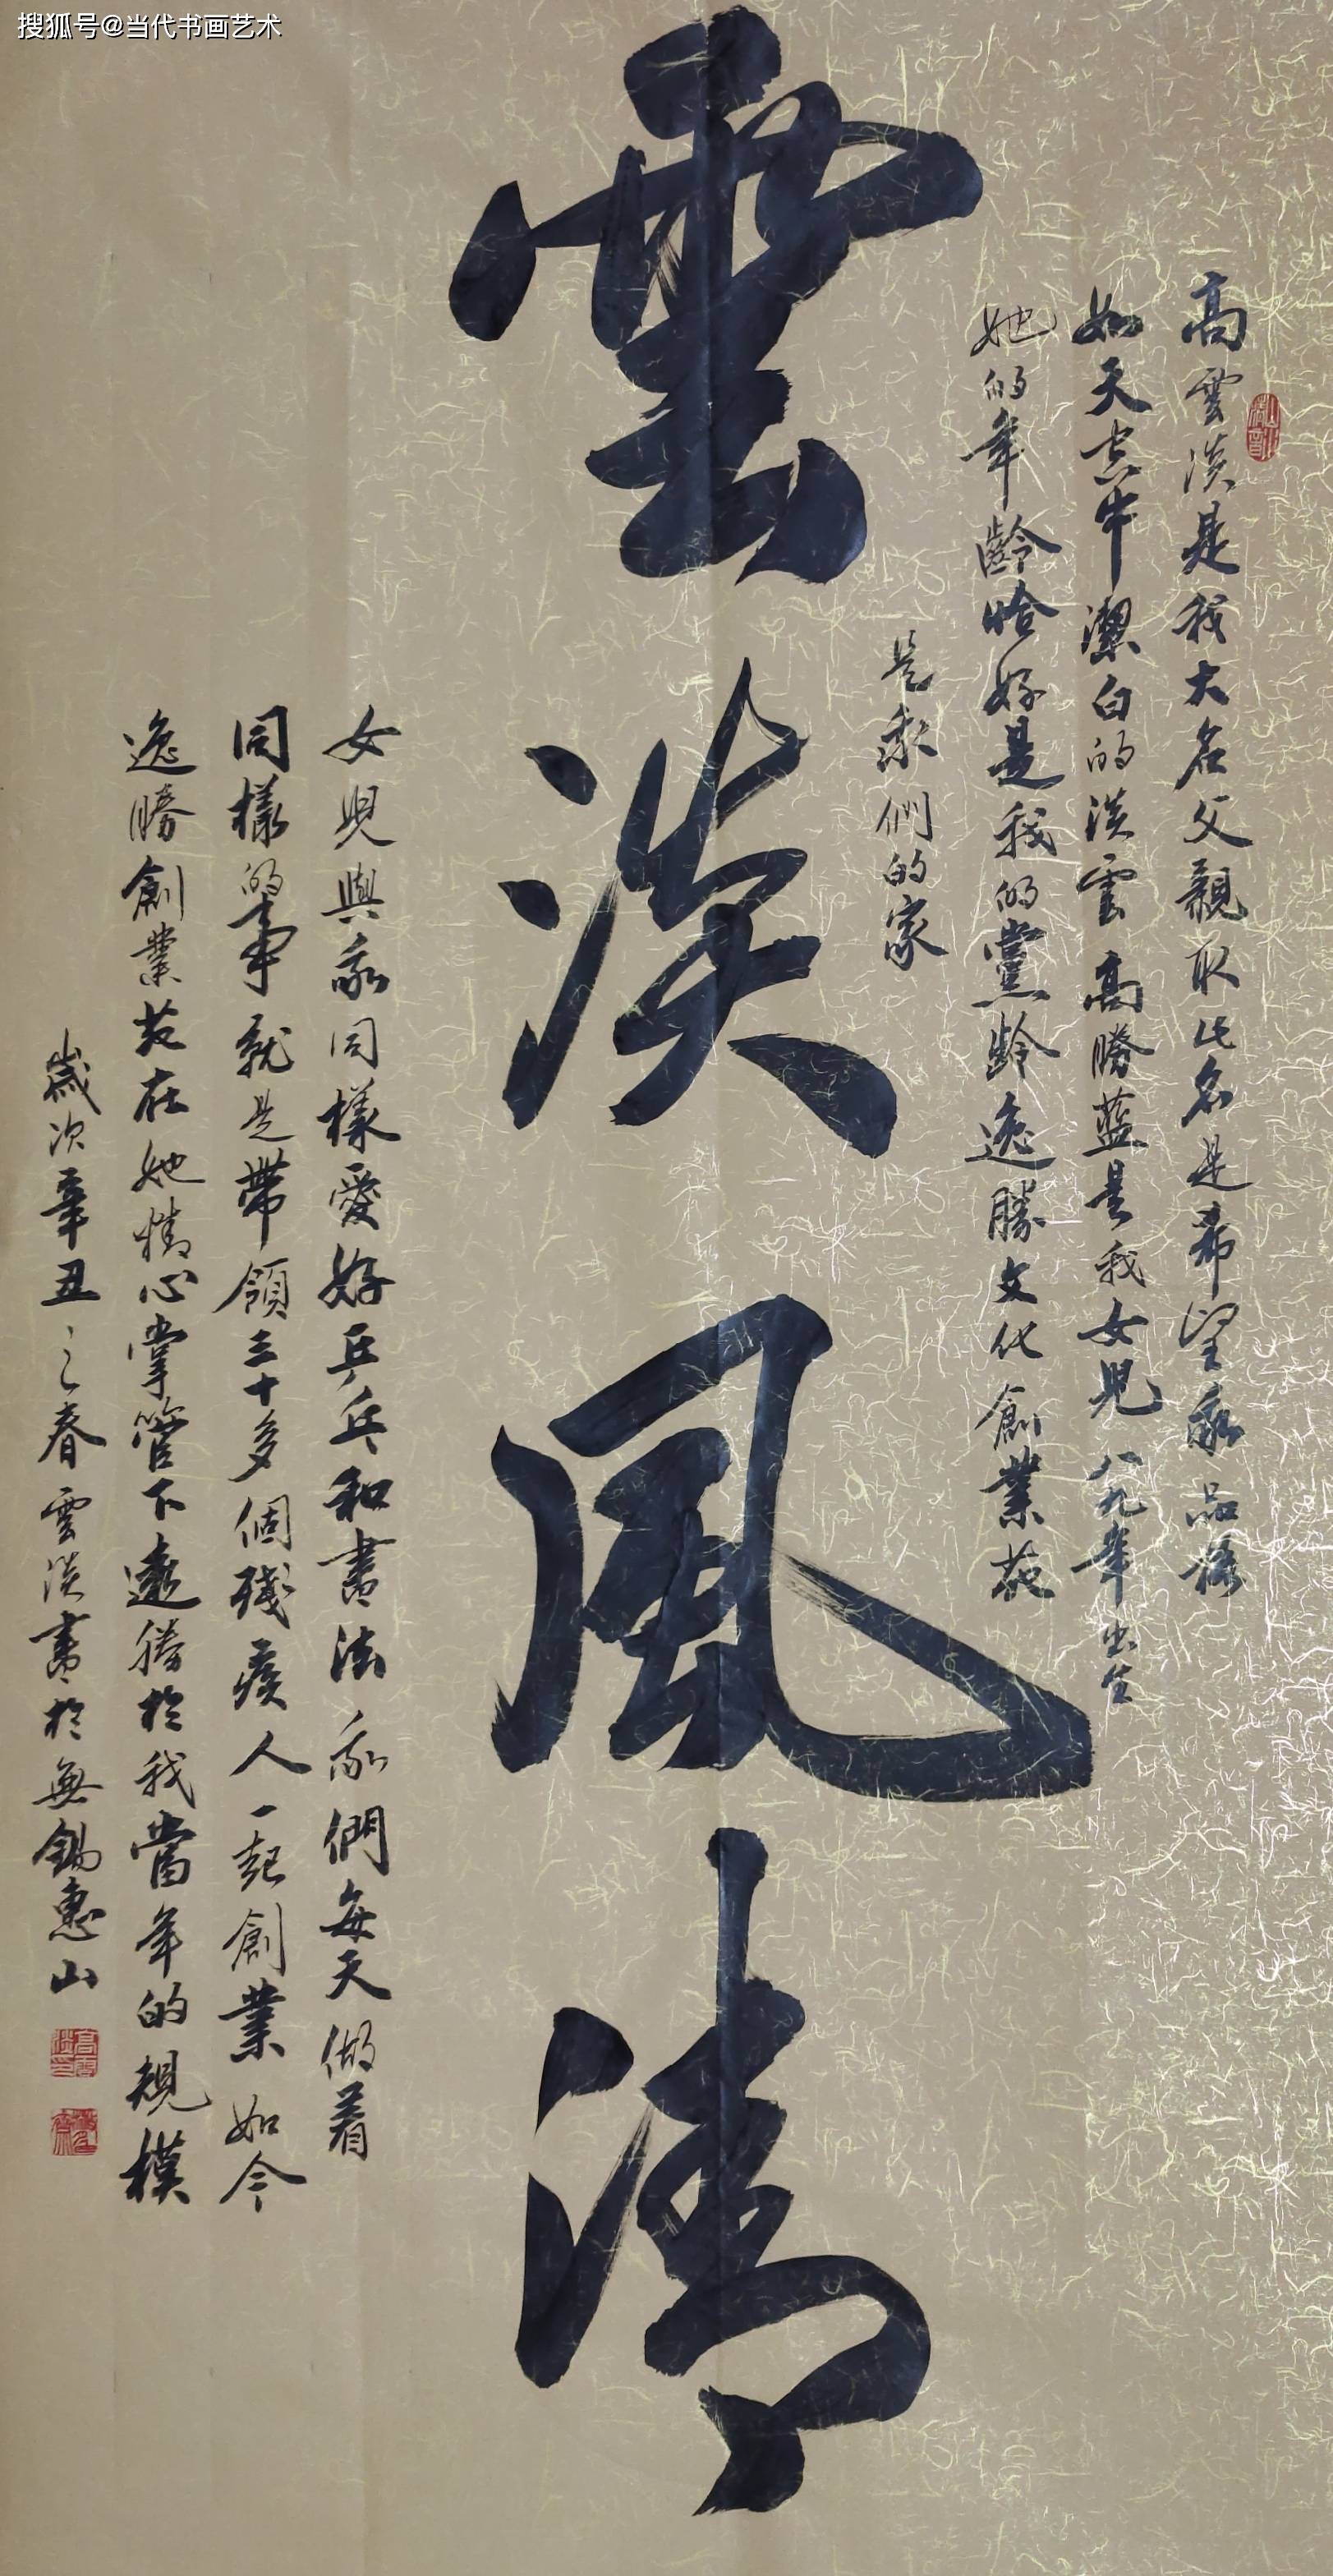 搜狐号@当代书画艺术
高雲淡是我大名父親取此名是希望我品格
如天空中潔白的淡雲高勝藍是我女兒八九年出生
她的年齡恰好是我的黨齡逸勝文化創業苑
是我們的家
雲淡風清
女兒與我同樣愛好乒乓和書法我們每天做着
同樣的事就是帶領三十多個殘疾人一起創業如今
逸勝創業苑在她精心掌管下遠勝於我當年的規模
歲次辛丑之春雲淡書於無錫惠山